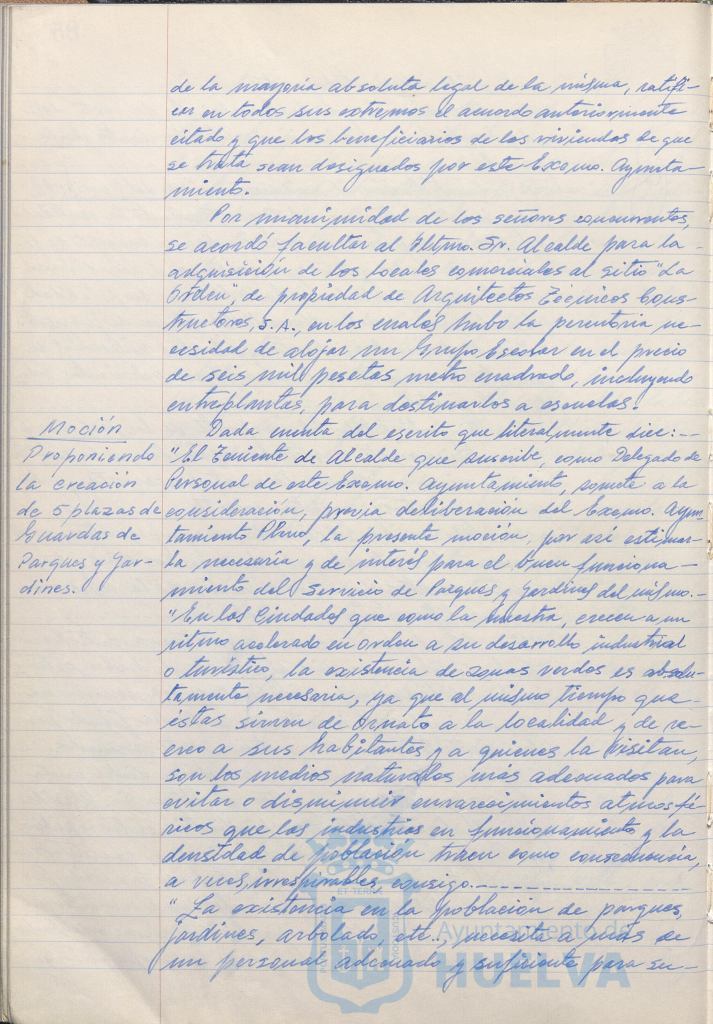 de la mayoría absoluta legal de la misma, ratifi-
car en todos sus extremos el acuerdo anteriormente
citado y que los beneficiarios de las viviendas de que
se trata sean designados por este Excmo. Ayunta-
miento.
Por unanimidad de los señores concurrentes,
se acordó facultar al Iltmo. Sr. Alcalde para la
adquisición de los locales comerciales al sitio "La
Orden", de propiedad de Arquitectos Técnicos Cons-
tructores, S.A., en los cuales hubo la perentoria ne-
cesidad de alojar un Grupo Escolar en el precio
de seis mil pesetas metro cuadrado, incluyendo
entreplantas, para destinarlos a escuelas.
Moción
Proponiendo
la creación
de 5 plazas de
Guardas de
Parques y Jar-
dines.
Dada cuenta del escrito que literalmente dice:--
"El Teniente de Alcalde que suscribe, como Delegado de
Personal de este Excmo. Ayuntamiento, somete a la
consideración, previa deliberación del Excmo. Ayun-
tamiento Pleno, la presente moción, por así estimar-
la necesaria y de interés para el buen funciona-
miento del Servicio de Parques y Jardines del mismo.-
"En las Ciudades que como la nuestra, crecen a un
ritmo acelerado en orden a su desarrollo industrial
o turístico, la existencia de zonas verdes es absolu-
tamente necesaria, ya que al mismo tiempo que
éstas sirven de ornato a la localidad y de re-
creo a sus habitantes y a quienes la visitan,
son los medios naturales más adecuados para
evitar o disminuir enrarecimientos atmosfé-
ricos que las industrias en funcionamiento y la
densidad de población traen como consecuencia,
a veces, irrespirables consigo.---------------
"La existencia en la población de parques,
jardines, arbolado, ett., necesita a más de
un personal adecuado y suficiente para su-
Ayuntamiento de
HUELVA